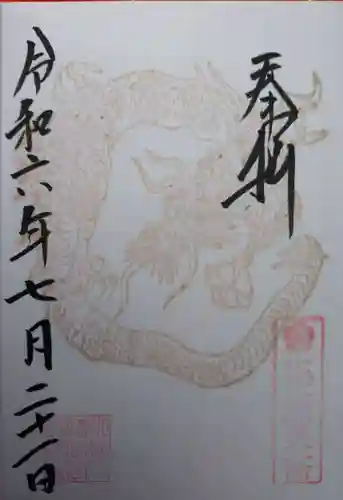 奉拝
令和六年七月二十一日